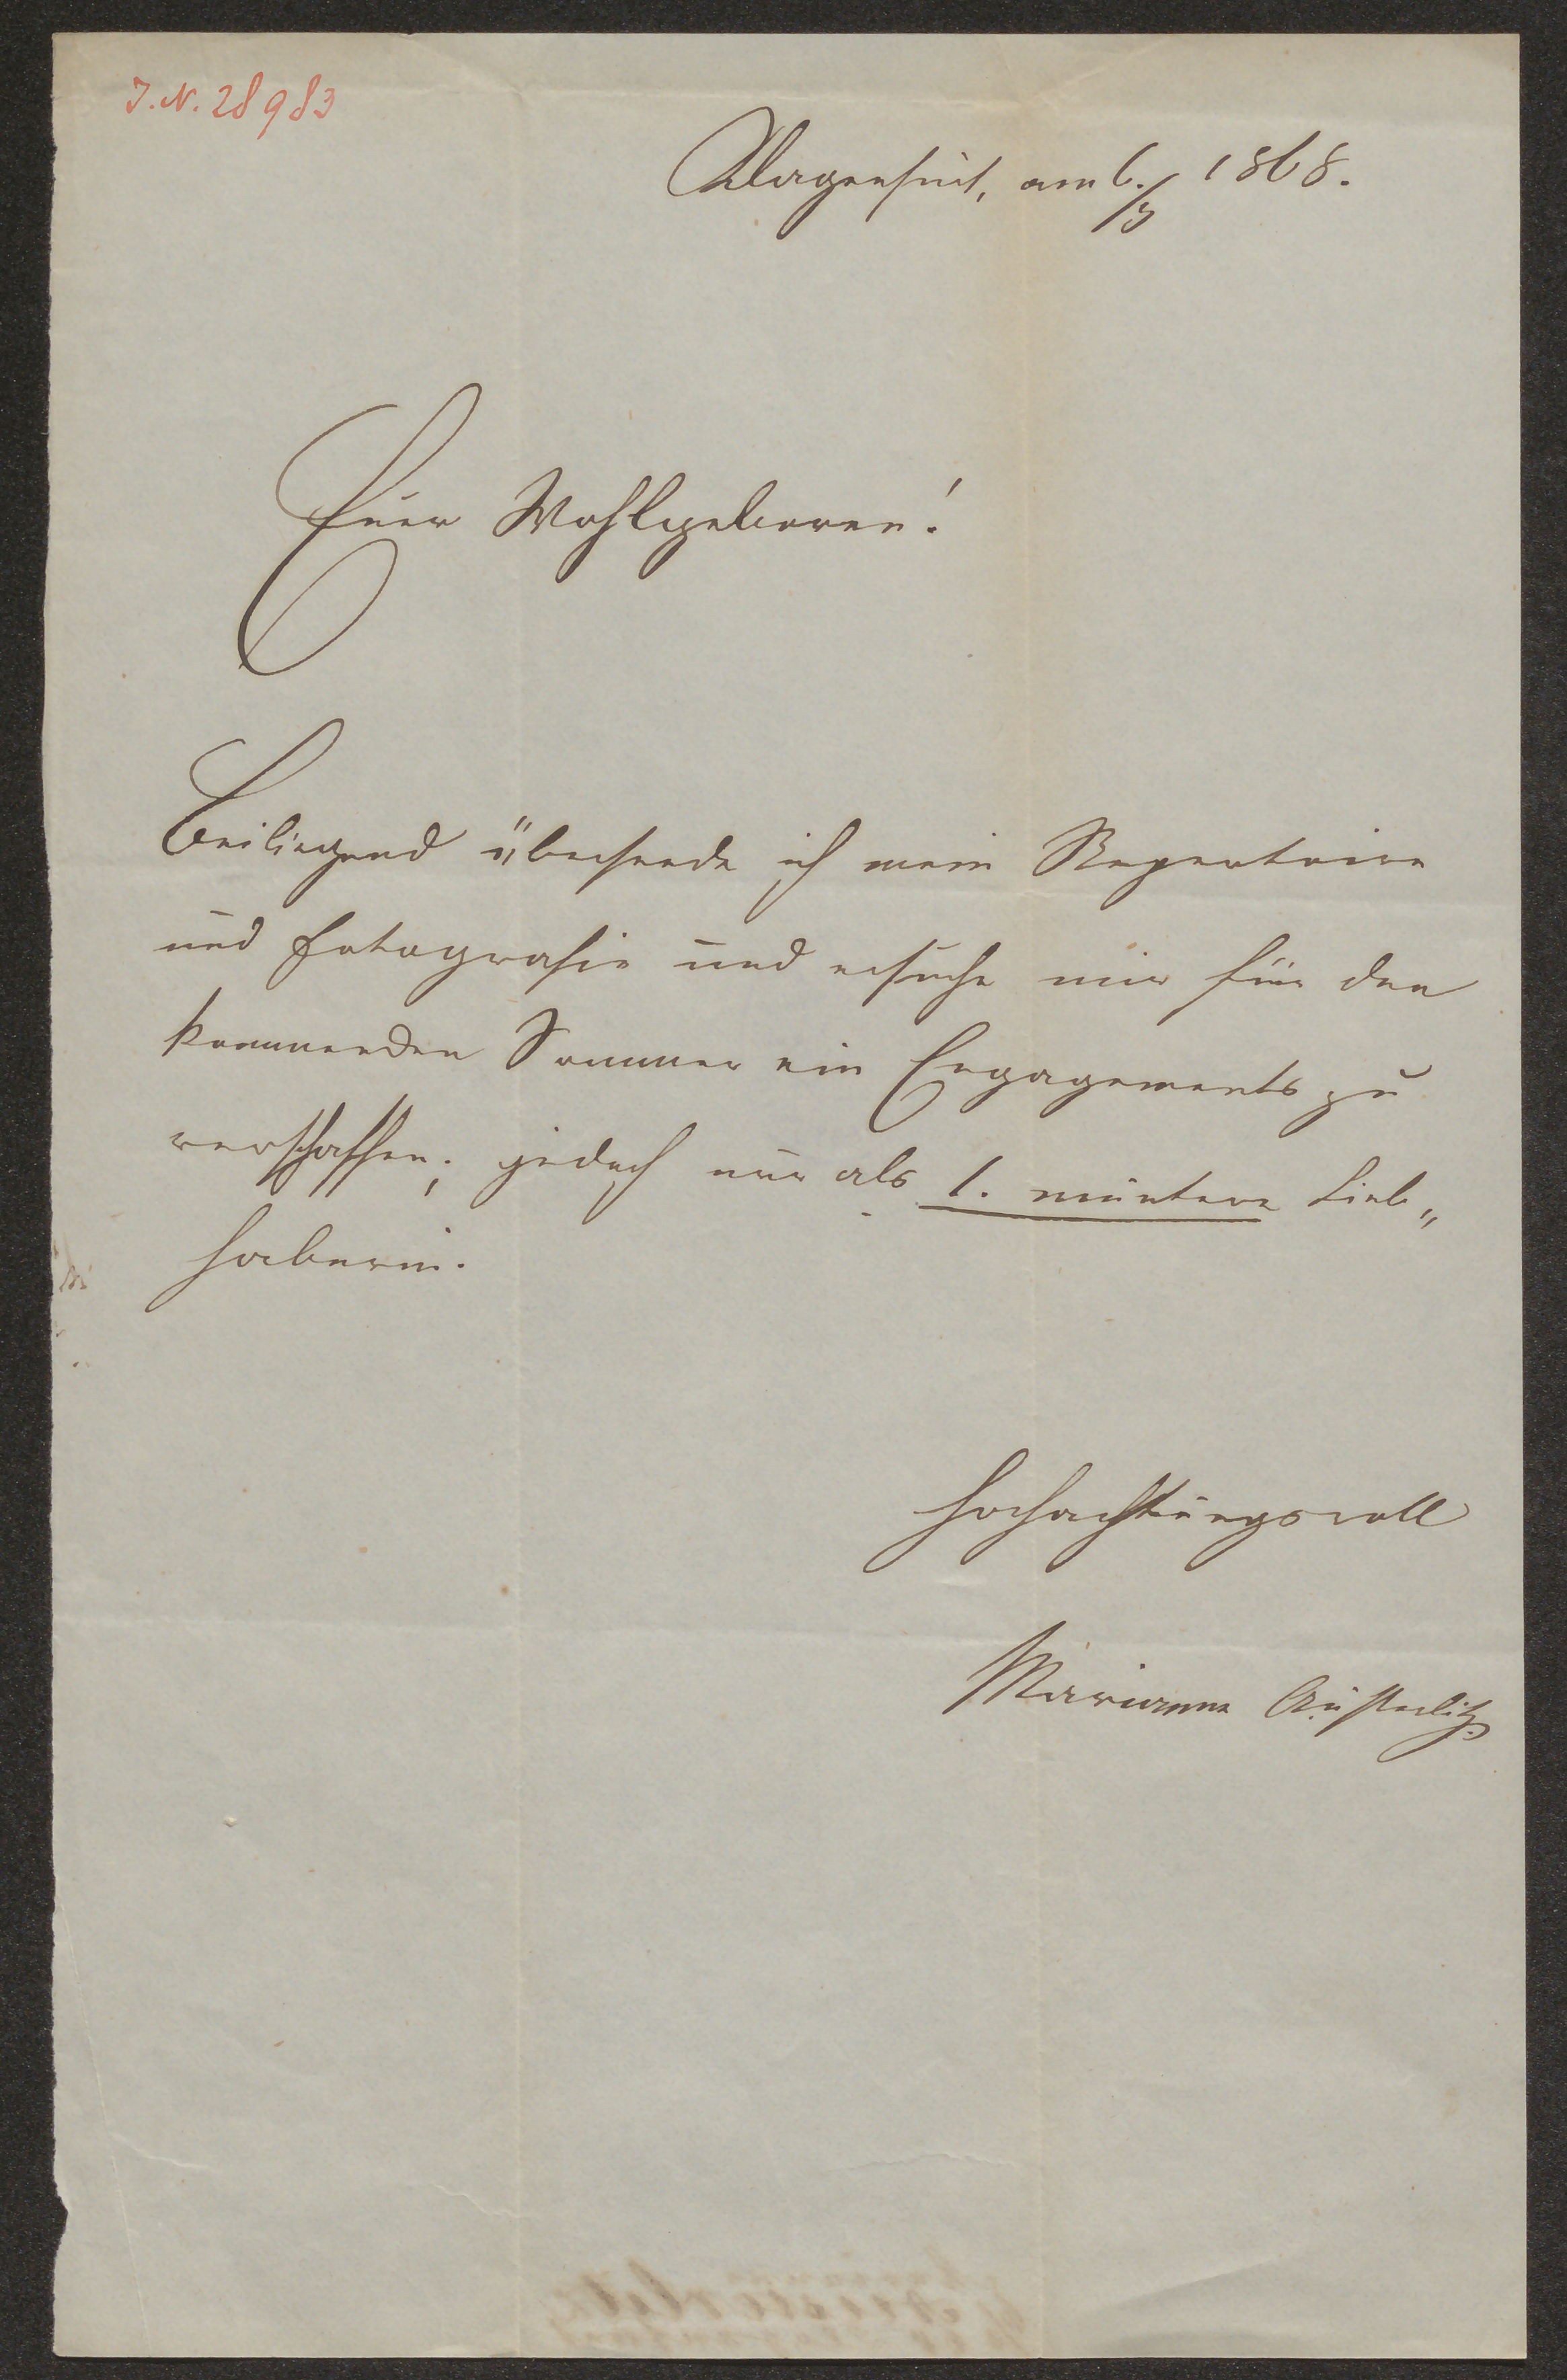 I. N. 28983
Klagenfurt, am 6./3 1868.
Euer Wohlgeboren!
Beiliegend übersende ich mein Repertoire
und Fotografie und ersuche mir für den
kommenden Sommer ein Engagements zu
verschaffen; jedoch nur als 1. muntere Lieb„
haberin.
Hochachtungsvoll
Marianne Austerlitz